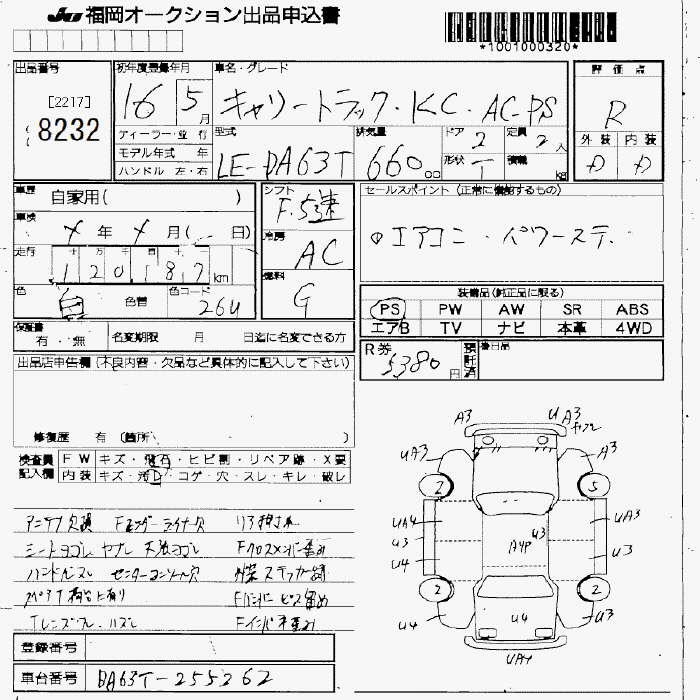 JU 福岡オークション出品申込書
*1001000320*
出品番号
[2217]
8232
初年度登録年月
16 5月
ディーラー・並行
モデル年式 年
ハンドル 左・右
車名・グレード
キャリートラック・KC・AC・PS
型式
LE-DA63T
排気量
660 cc
ドア
2
形状
T
定員
2人
積載
kg
評価点
R
外装 内装
D D
車歴
自家用( )
車検
年 月( 日)
走行
120187 km
色
白
色替
色コード
26U
シフト
F・5速
冷房
AC
燃料
G
セールスポイント (正常に機能するもの)
エアコン・パワーステ.
装備品(純正品に限る)
PS PW AW SR ABS
エアB TV ナビ 本革 4WD
保証書
有・無
名変期限 月 日迄に名変できる方
R券
5380円
預託済
後日品
出品店申告欄 (不良内容・欠品など具体的に記入して下さい)
修復歴 有 (箇所 )
検査員記入欄
FW キズ・飛石・ヒビ割・リペア跡・X要
内装 キズ・汚レ・コゲ・穴・スレ・キレ・破レ
アンテナ欠損 Fフェンダーライナー欠
シートヨゴレ ヤブレ 天張ヨゴレ Fクロスメンバー歪み
ハンドルスレ センターコンソール穴 外装ステッカー跡
Fバンパー ビス留め
登録番号
車台番号
DA63T-255262
A3
UA3
UA3
A3
2
5
UA4
U3
U4
U3
AYP
UA3
U3
2
2
U4
U4
U3
UA4